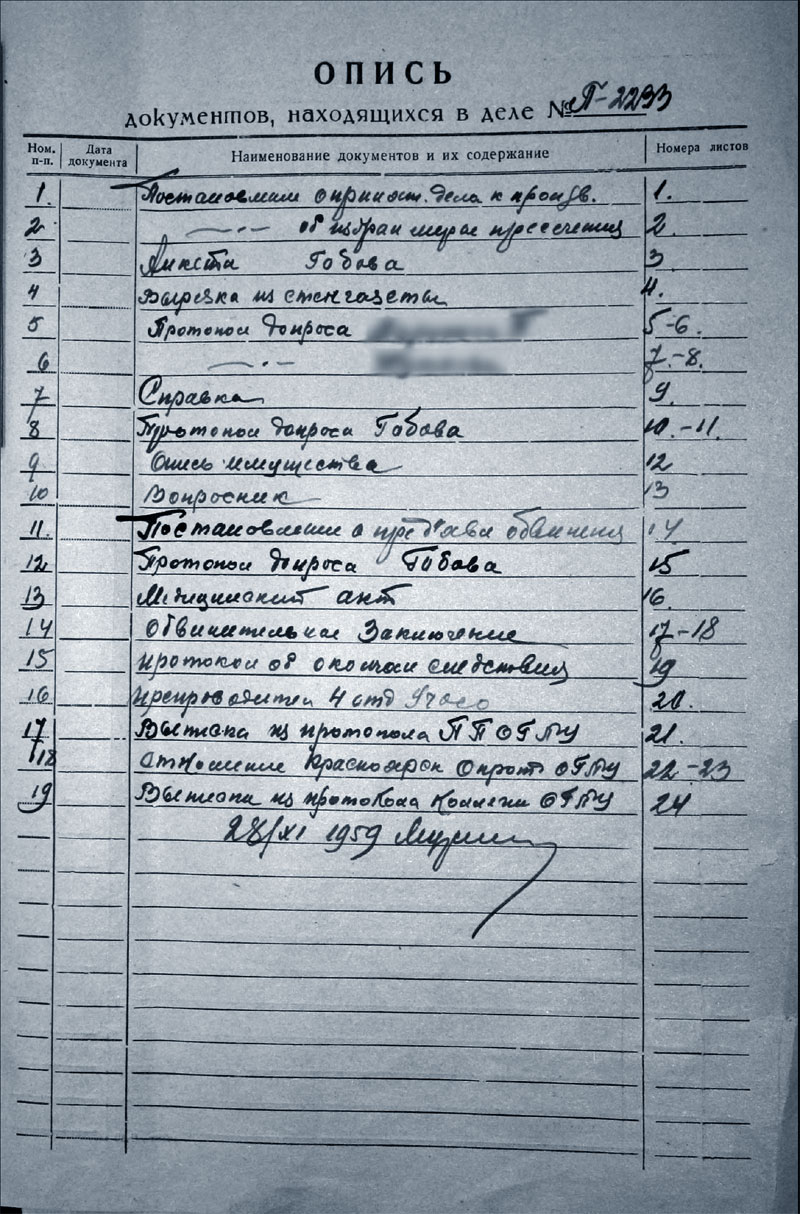 ОПИСЬ
документов, находящихся в деле № П-2293
Ном. п-п. Дата документа Наименование документов и их содержание Номера листов
1. Постановлении о принят. дела к произв. 1.
2 —"— об избран мерое пресечения 2.
3 Анкета Габова 3
4 Вырезка из стенгазеты 4.
5 Протокол допроса 5-6.
6 —"— 7.-8.
7 Справка 9.
8 Протокол допроса Габова 10.-11.
9 Опись имущества 12
10 Вопросник 13
11. Постановлении о предъяви обвинения 14
12 Протокол допроса Габова 15
13 Медицинский акт 16.
14 Обвинительное Заключение 17-18
15 протокол об окончан следствия 19
16 препроводител 4 отд 20.
17 Выписка из протокола ПП ОГПУ 21.
18 Отношение Красноярск Оперот ОГПУ 22-23
19 Выписка из протокола Коллеги ОГПУ 24
28/XI 1959